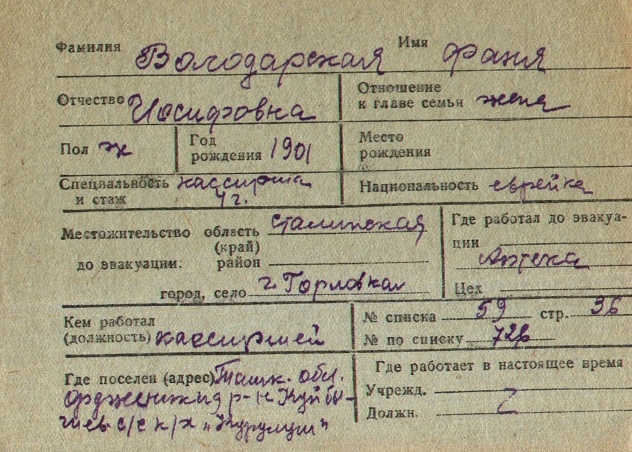 Фамилия Володарская Имя Фаня
Отчество Иосифовна
Отношение к главе семьи жена
Пол ж
Год рождения 1901
Место рождения
Специальность и стаж кассирша 4 г.
Национальность еврейка
Местожительство область Сталинская
(край)
до эвакуации: район
город, село г. Горловка
Где работал до эвакуа-
ции
Аптека
Цех
Кем работал
(должность) кассиршей
№ списка 59 стр. 36
№ по списку 728
Где поселен (адрес) Ташк. обл.
Орджоникид р-н Куйбы-
шев с/с к/х „Курулуш"
Где работает в настоящее время
Учрежд.
Должн.